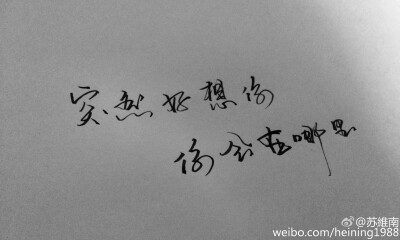 突然好想你
你会在哪里
@苏维南
weibo.com/heining1988